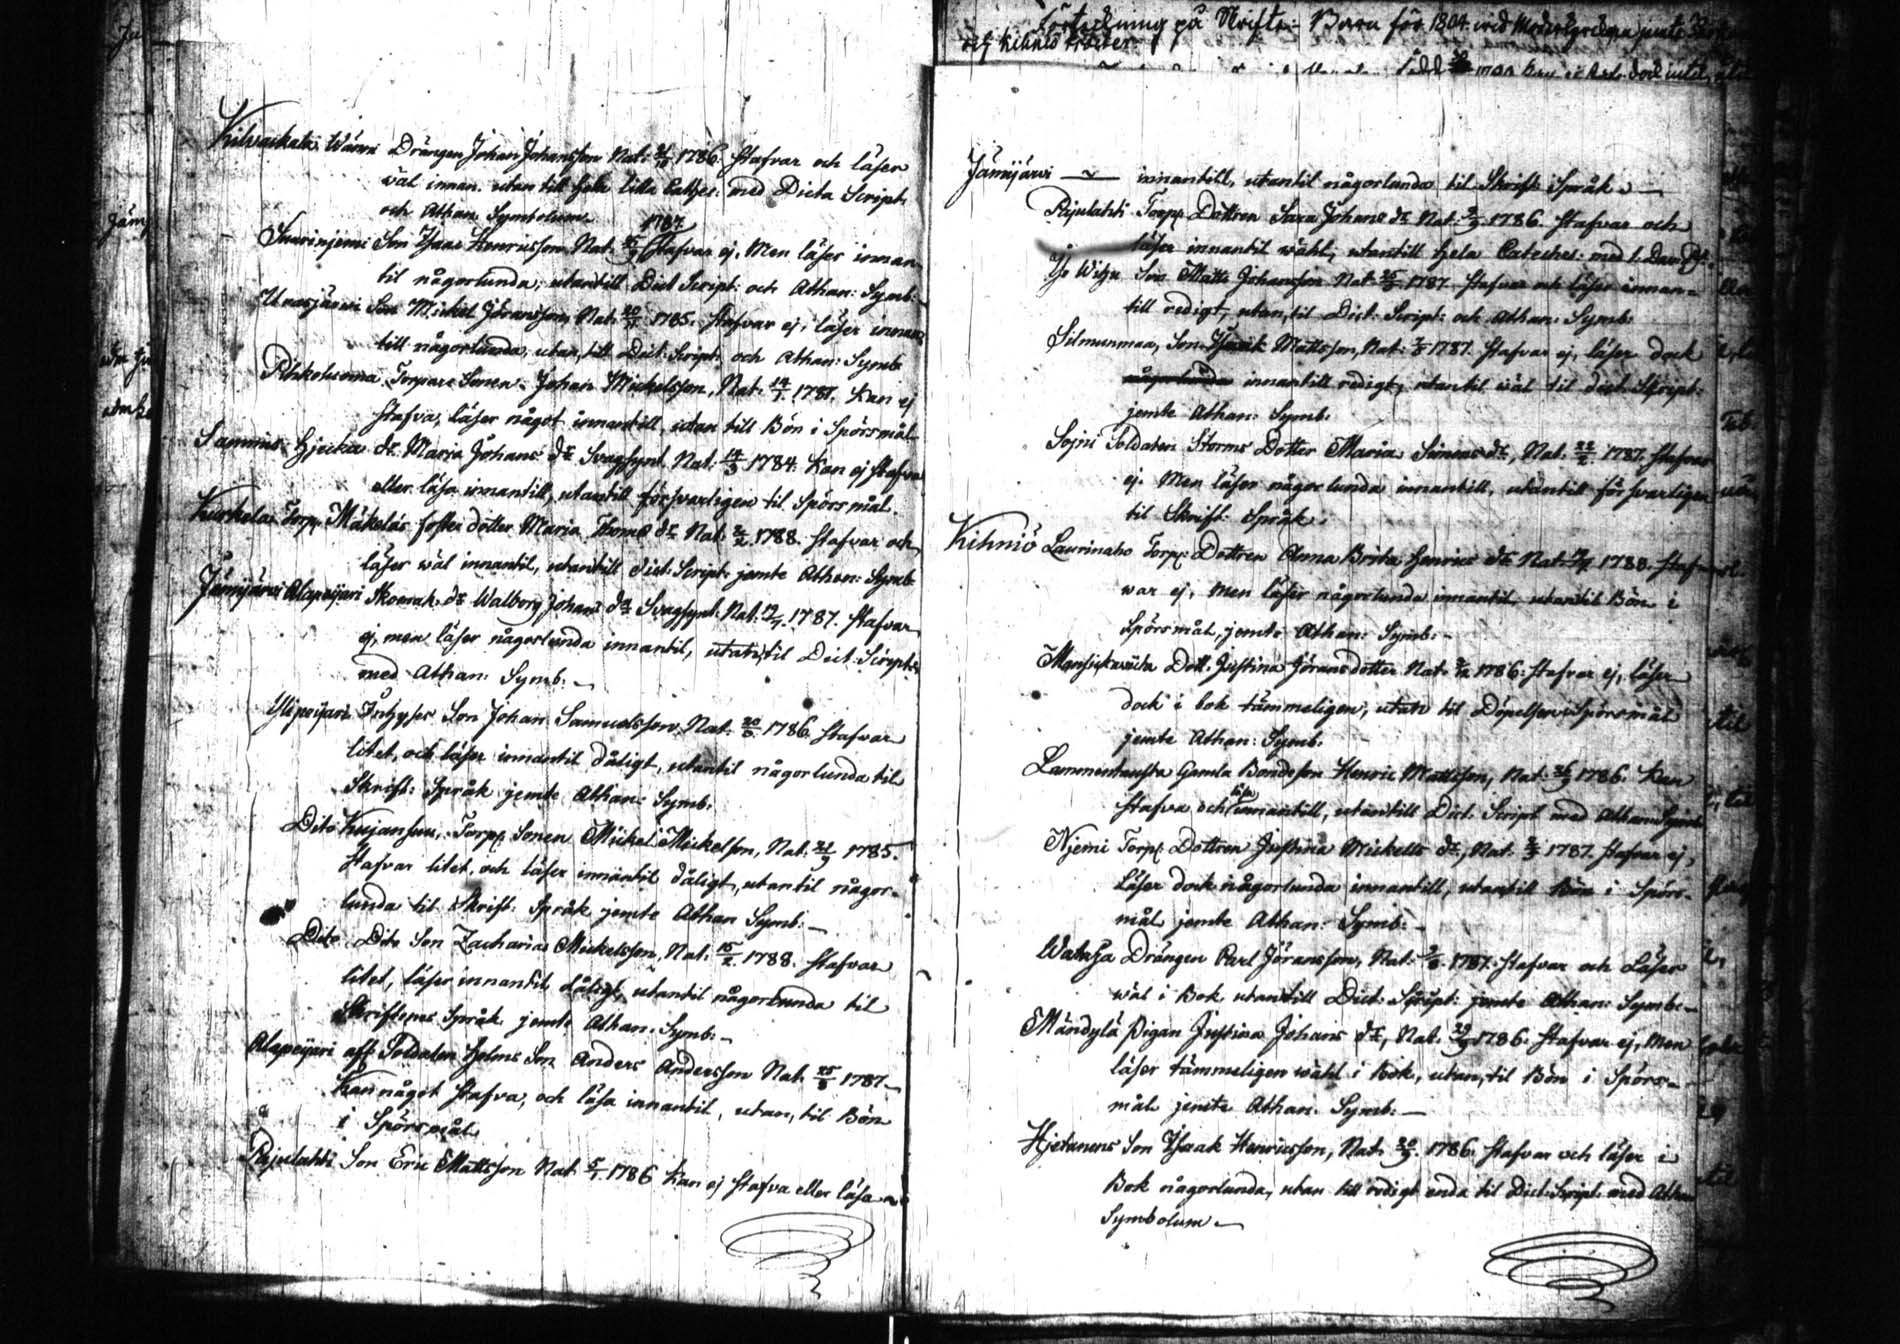 Kihvackala Wänni Drängen Johan Johansson Nat: 24/10 1786. Stafvar och läser
wäl innan. utan till hela lilla Catches: med Dicta Script.
och Athan. Symbolum.
Suurinjemi Son Isaac Henricsson Nat: 1787. Stafvar ej, Men läser innan-
til någorlunda, utantill Dict Script: och Athan: Symb:
Uurasjärwi Son Mickel Göransson, Nat: 20/7 1785. Stafvar ej, läser innan
till någorlunda, utan till Dict: Script: och Athan: Symb
Pihkoluoma Torpare Sonen Johan Mickelsson, Nat: 14/1 1787. Kan ej
stafva, läser något innantill, utan till Bön i Spörsmål
Sammi Hjecka dr Maria Johans dr Svagsynt Nat: 14/3 1784. Kan ej stafva
eller läsa innantill, utantill försvarligen til Spörsmål.
Kurkela Torp: Mäkeläs foster dotter Maria Thoms dr Nat: 2/2 1788. Stafvar och
läser wäl innantil, utantill dict: Script: jemte Athan: Symb
Jämijärvi Alapeijari dr Walborg Johans dr Svagsynt Nat: 1787. Stafvar
ej, men läser någorlunda innantil, utan til Dict: Script:
med Athan: Symb:
Ylipeijari Inhyses Son Johan Samuelsson, Nat: 20/8 1786. Stafvar
litet, och läser innantil dåligt, utantil någorlunda til
Skrift: Språk jemte Athan: Symb:
Dito Kujansuu, Torp: Sonen Mickel Mickelson, Nat: 21/9 1785.
Stafvar litet, och läser innantil dåligt, utantil någor-
lunda til Skrift: Språk jemte Athan Symb:
Dito Dito Son Zacharias Mickelsson, Nat: 15/2 1788. Stafvar
litet, läser innantil dåligt, utantil någorlunda til
Skriftenes Språk jemte Athan. Symb:
Alapeijari afs: Soldaten Holms Son Anders Andersson Nat: 25/8 1787
Kan något stafva, och läsa innantil, utan til Bön
i Spörsmål
Rajulahti Son Eric Mattsson Nat: 5/1 1786 Kan ej stafva eller läsa
Förteckning på Skrifte-Barn för 1804 wid Moderkyrkan jemte
och Kihniö
Jämijärwi innantill, utantil någorlunda til Skrift: Språk
Rajulahti Torp: Dottren Sara Johans dr Nat: 1786. Stafvar och
läser innantil wähl, utantill hela Cateches: med
Son Matts Johansson Nat: 1787 Stafvar och läser innan-
till redigt, utan til Dict: Script: och Athan: Symb:
Silmunmaa, Son Isaak Mattsson, Nat: 1787. Stafvar ej, läser dock
innantill redigt, utantil wäl til dict. Script:
jemte Athan: Symb:
Sojni Soldaten Storms Dotter Maria Simons dr, Nat: 22/2 1787 Stafvar
ej. Men läser någorlunda innantill, utantill försvarligen
til Skrift: Språk.
Kihniö Laurinaho Torp: Dottren Anna Brita Henrics dr Nat: 1788. Staf-
var ej, men läser någorlunda innantil, utantil Bön i
Spörsmål, jemte Athan: Symb:
Mansickawiita Dott: Justina Jörans dotter Nat: 1786: Stafvar ej, läser
dock i bok tämmeligen, utan til Döpelsen Spörsmål
jemte Athan: Symb:
Lammentausta Gamla Bondeson Henric Mattsson, Nat: 1786. Kan
stafva och läsa innantill, utantill Dict. Script med Athan Symb:
Njemi Torp: Dottren Justina Mickells dr, Nat: 1787. Stafvar ej,
Läser dock någorlunda innantill, utantill Bön i Spörs-
mål jemte Athan: Symb:
Wataja Drängen Carl Jöransson, Nat: 1787. Stafvar och Läser
wäl i Bok utantill Dict: Script: jemte Athan: Symb:
Mändylä Pigan Justina Johans dr, Nat: 29/9 1786. Stafvar ej, Men
läser tämmeligen wähl i Bok, utan til Bön i Spörs-
mål jemte Athan. Symb:
Hjetanens Son Isaak Henricsson, Nat: 1786. Stafvar och läser i
Bok någorlunda, utan till redigt enda til Dict: Script: med Athan
Symbolum